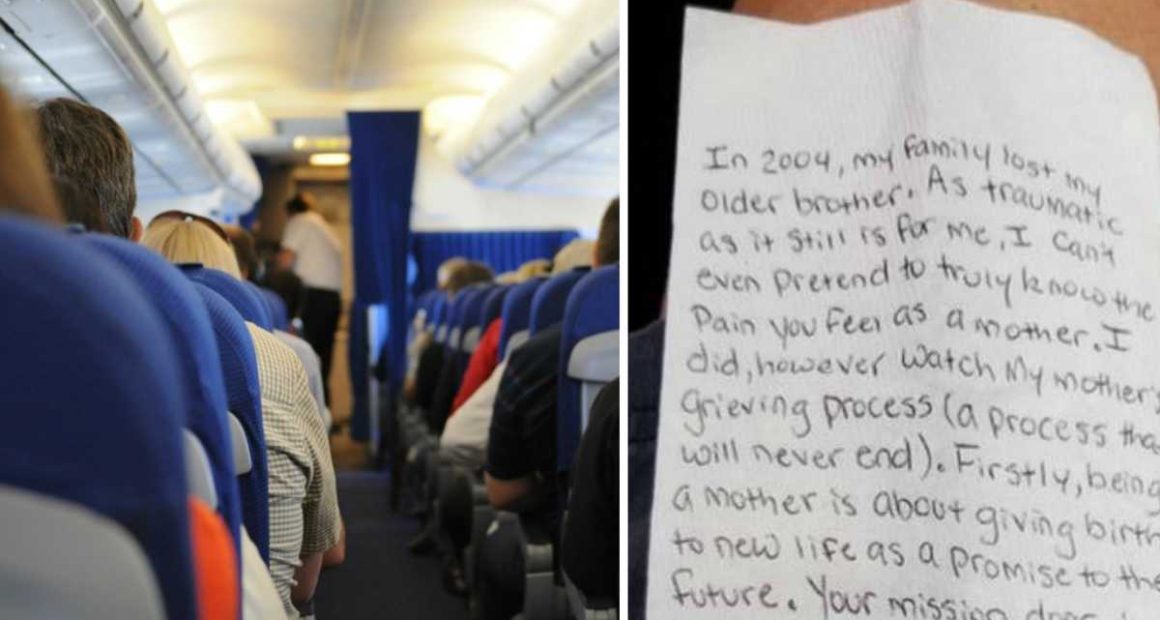 In 2004, my family lost my
older brother. As traumatic
as it still is for me, I can't
even pretend to truly know the
Pain you feel as a mother. I
did, however watch my mother's
grieving process (a process tha
will never end). Firstly, being
a mother is about giving birth
to new life as a promise to the
future. Your mission